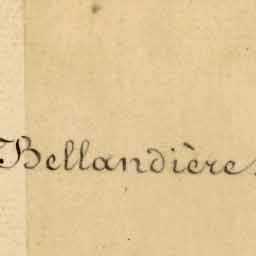 Bellandière